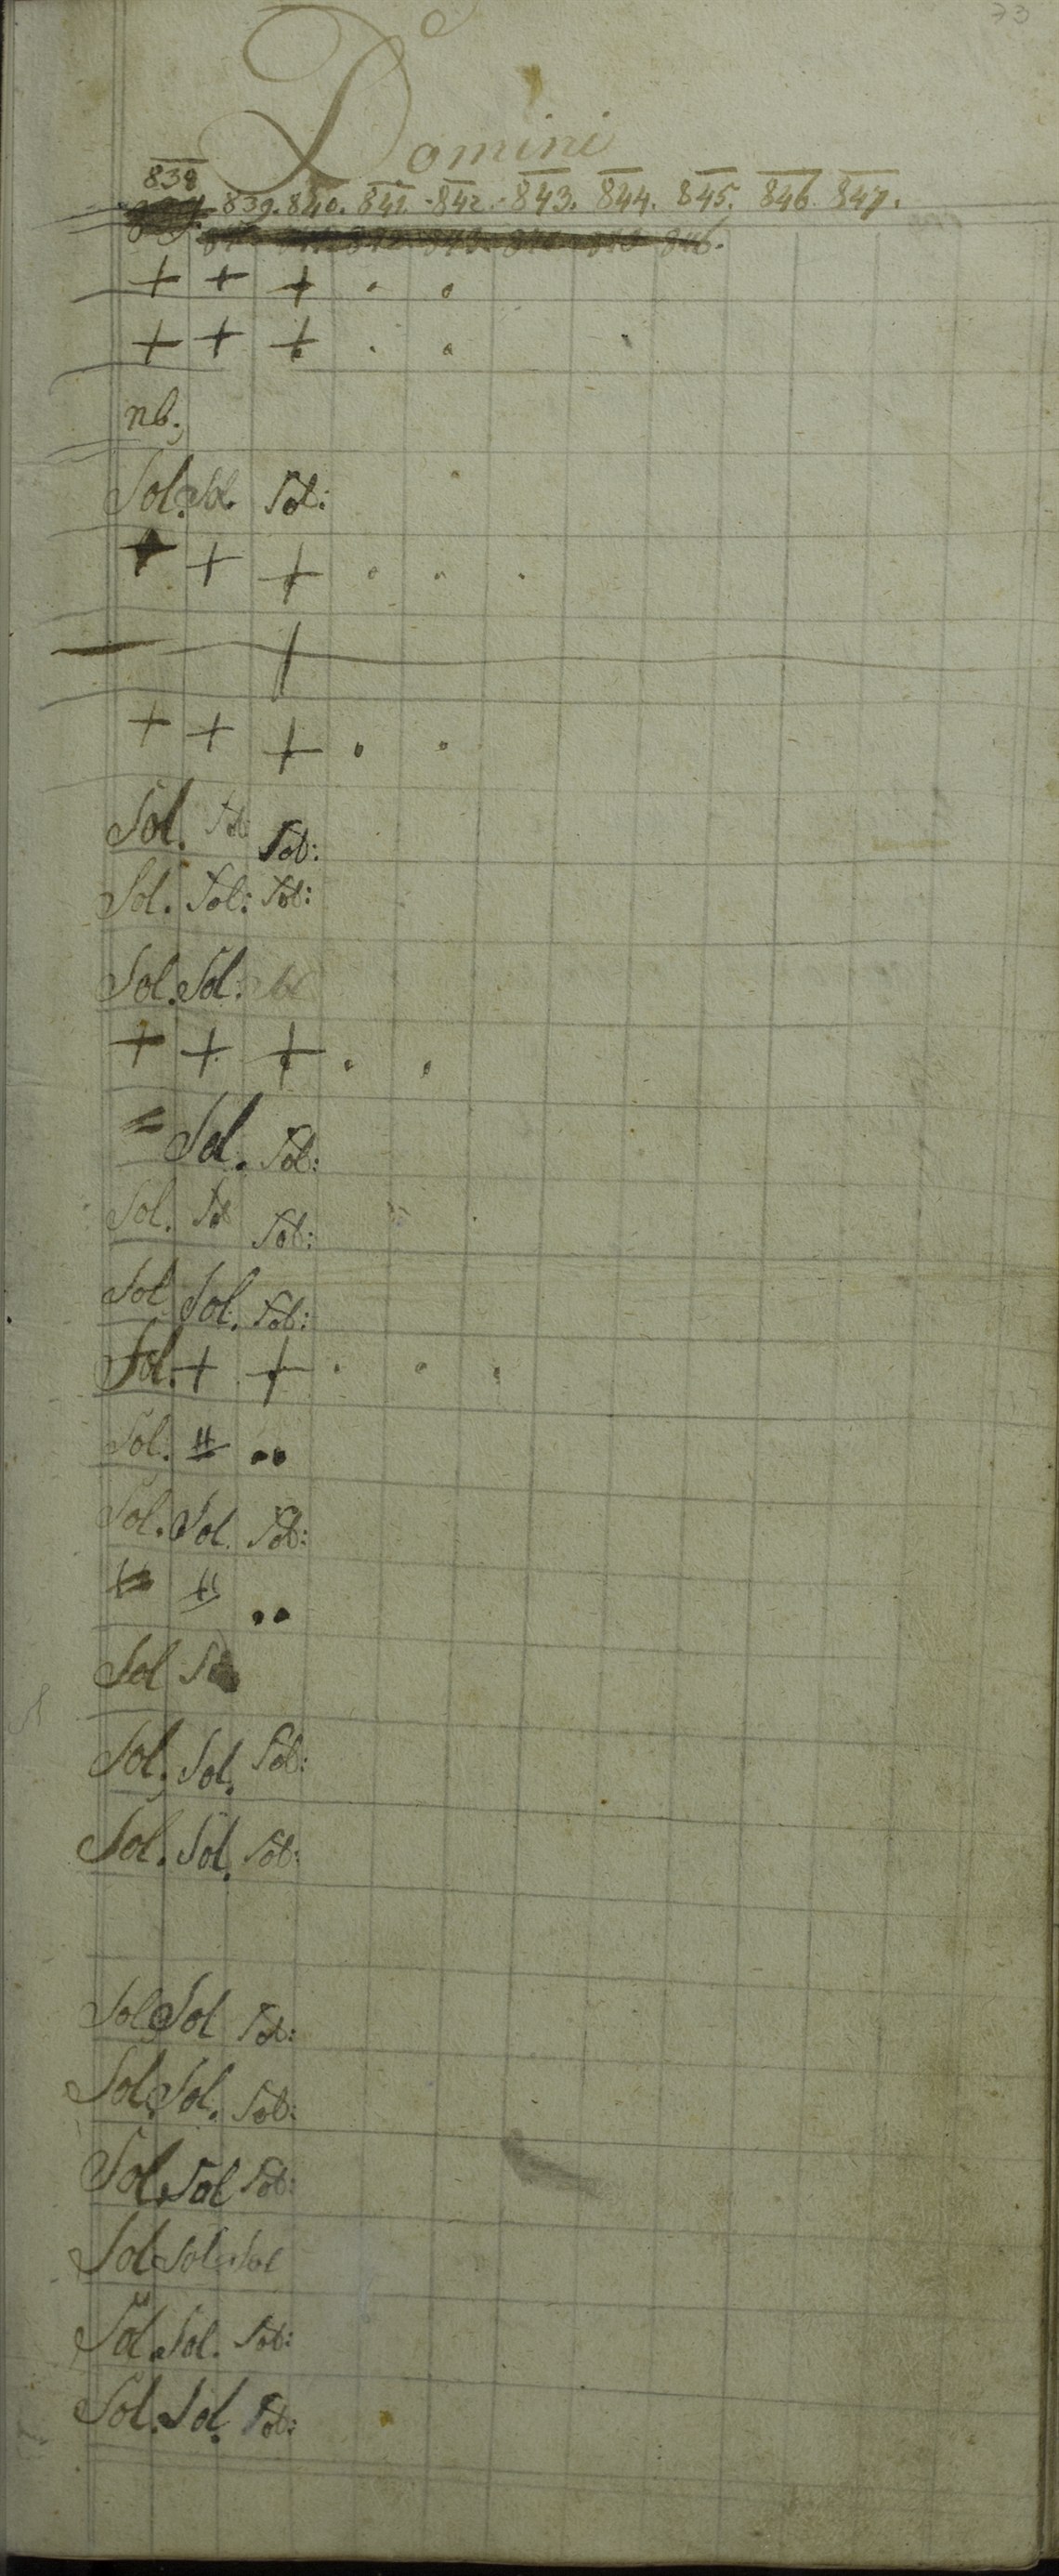 73
Domini
838
839. 840. 841. 842. 843. 844. 845. 846. 847.
846.
+ + + . .
+ + + . .
nb;
Sol. Sol. Sol:
+ + + . . .
+ + + . .
Sol. Sol Sol:
Sol. Sol: Sol:
Sol. Sol. Sol
+ + + . .
= Sol. Sol:
Sol. Sol Sol:
Sol Sol. Sol:
Sol. + + . . .
Sol. ..
Sol. Sol. Sol:
..
Sol Sol
Sol. Sol. Sol:
Sol. Sol. Sol:
Sol Sol Sol:
Sol. Sol. Sol:
Sol. Sol Sol:
Sol Sol Sol
Sol. Sol. Sol:
Sol. Sol. Sol: